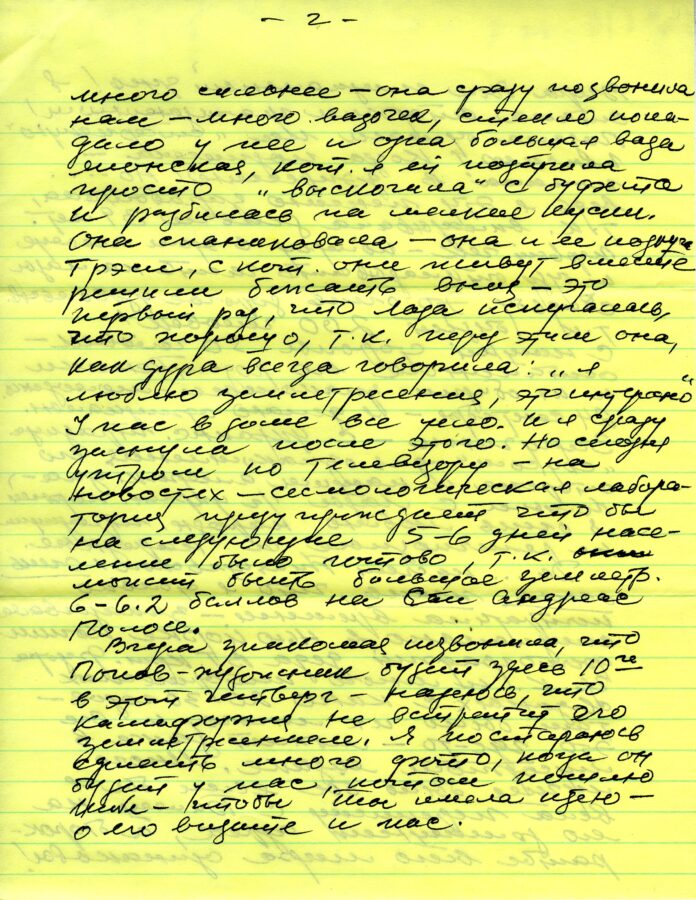 - 2 -
много сильнее - она сразу позвонила
нам - много вазочек, стекло попа-
дало у нее и одна большая ваза
японская, кот. я ей подарила
просто „выскочила" с буфета
и разбилась на мелкие куски.
Она спаниковала - она и ее подруга
Трэси, с кот. они живут вместе
решили бежать вниз - это
первый раз, что Лада испугалась,
что хорошо, т.к. перед этим она,
как дура всегда говорила: „я
люблю землетресения, это интерено"
У нас в доме все цело. И я сразу
заснула после этого. Но сегодня
утром по телевизору - на
новостях - сесмологическая лабора-
тория предупреждает что бы
на следующие 5-6 дней насе-
ление было готово, т.к.
может быть большое землетр.
6-6.2 баллов на Сан Андреас
Полосе.
Вчера знакомая позвонила, что
Попов-художник будет здесь 10го
в этот четверг - надеюсь, что
Калифорния не встретит его
землетрясением. Я постараюсь
сделать много фото, когда он
будет у нас, потом пошлю
- чтобы ты имела идею -
о его визите и нас.